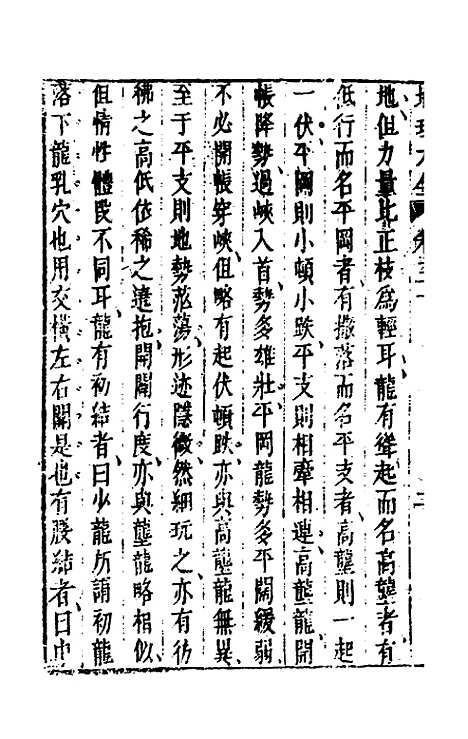 地但力量比正枝為輕耳龍有聳起而名高壟者有
低行而名平岡者有撒落而名平支者高壟則一起
一伏平岡則小頓小跌平支則相牽相連高壟龍開
帳降勢過峽入首勢多雄壯平岡龍勢多平闊緩弱
不必開帳穿峽但略有起伏頓跌亦與高壟龍無異
至于平支則地勢茫蕩形迹隱微然細玩之亦有彷
彿之高低依稀之遶抱開闔行度亦與壟龍略相似
但情性體段不同耳龍有初結者曰少龍所謂初龍
落下龍乳穴也用交橫左右關是也有腰結者曰中